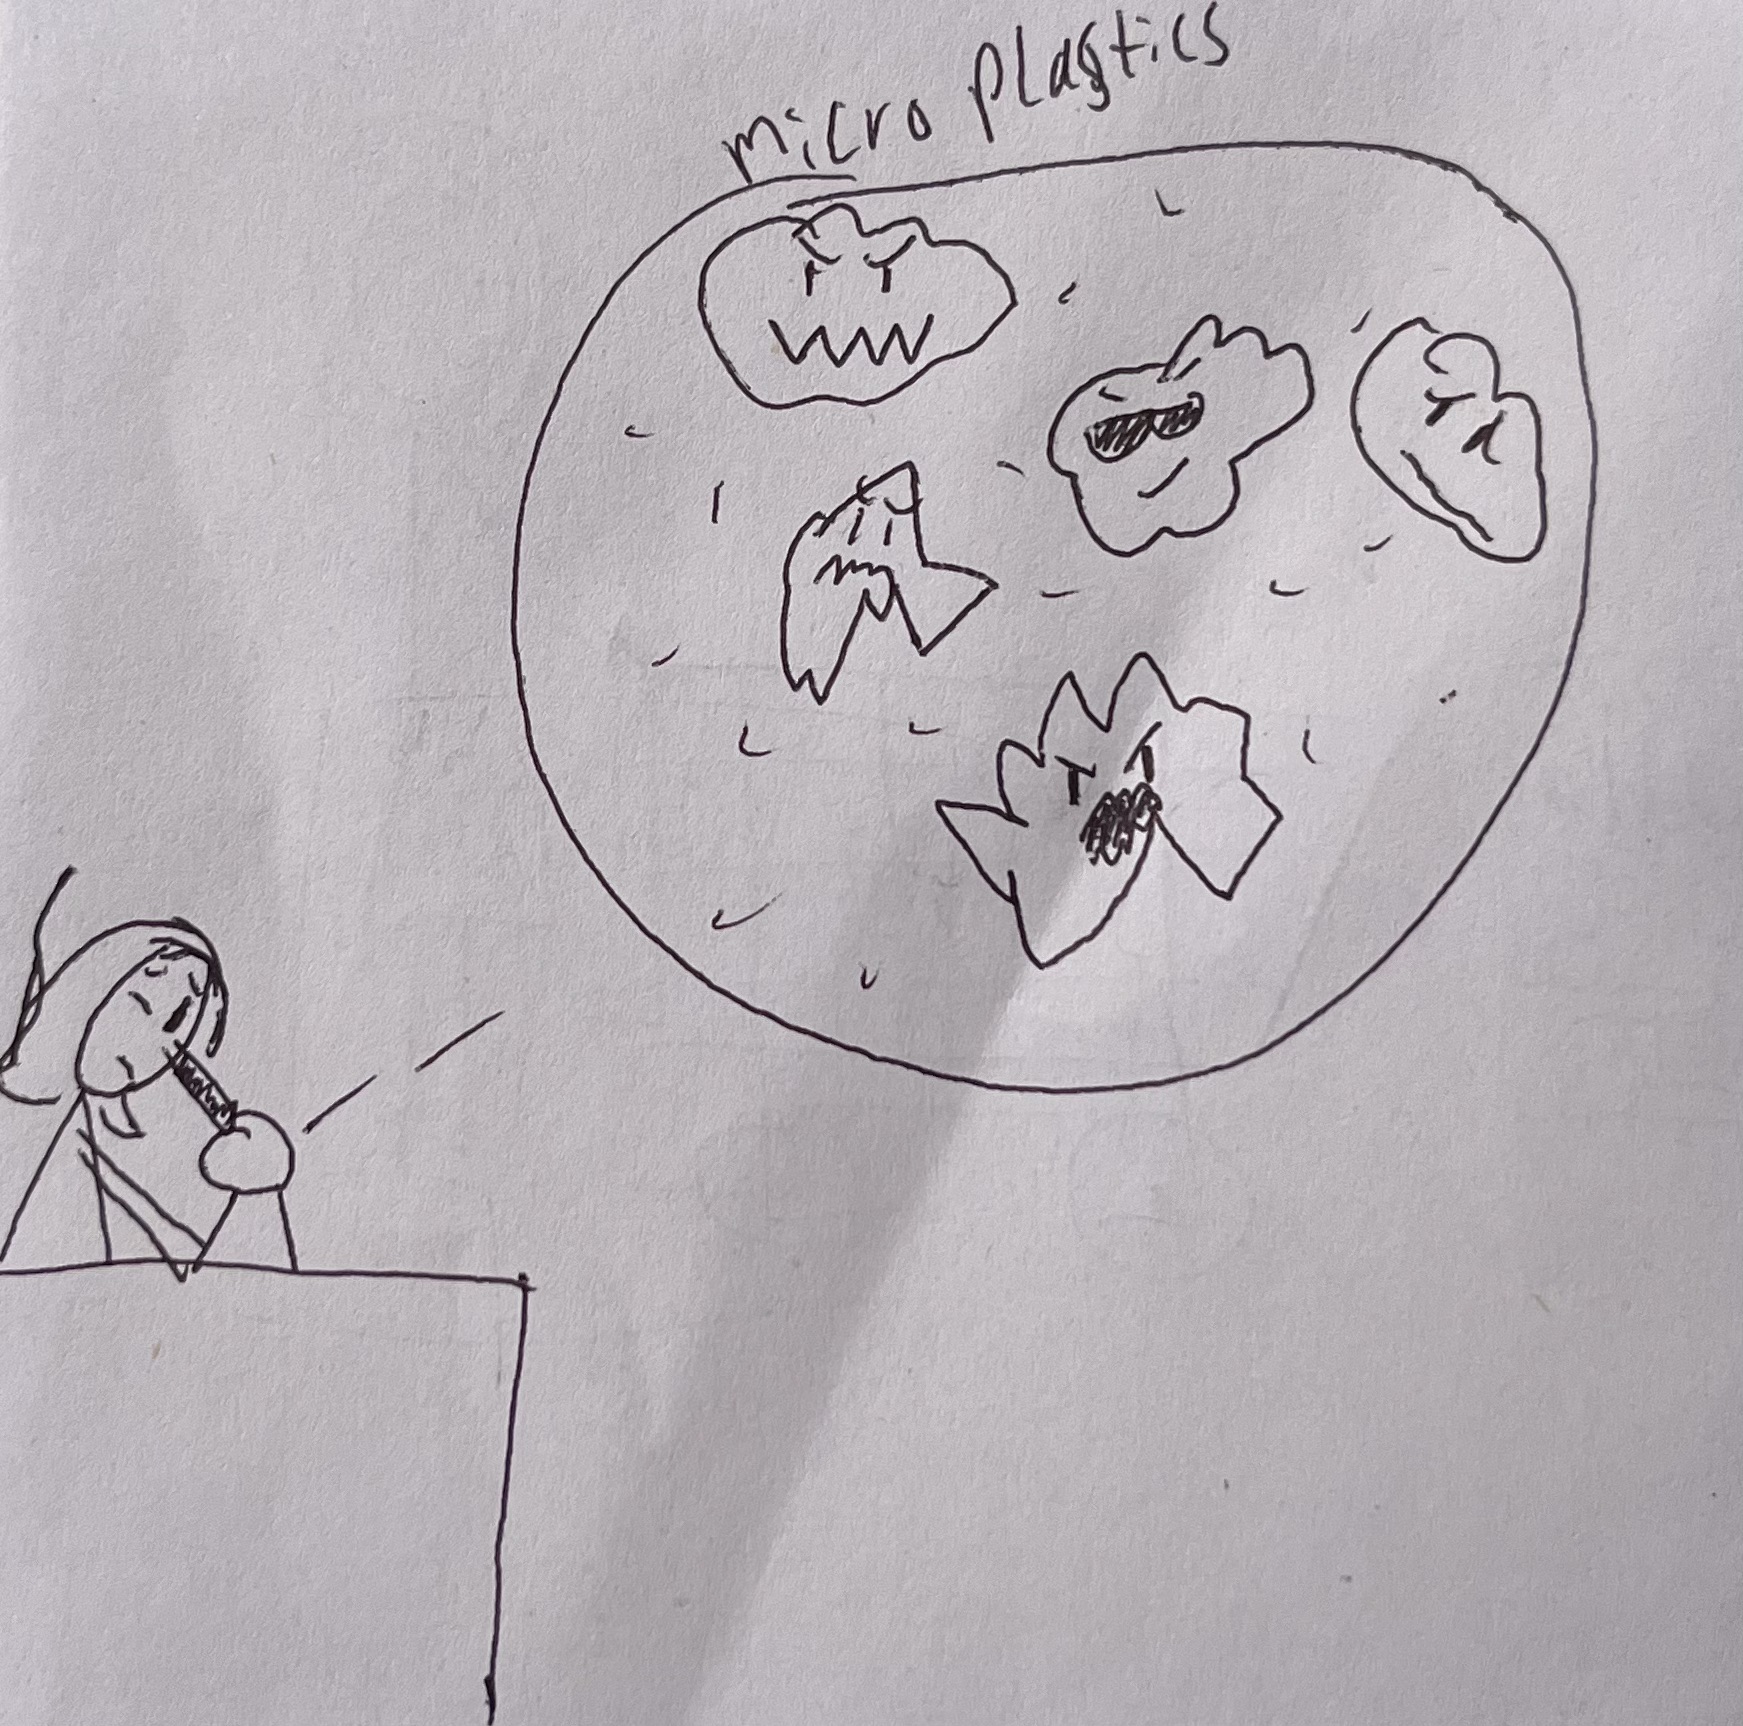 micro plastics